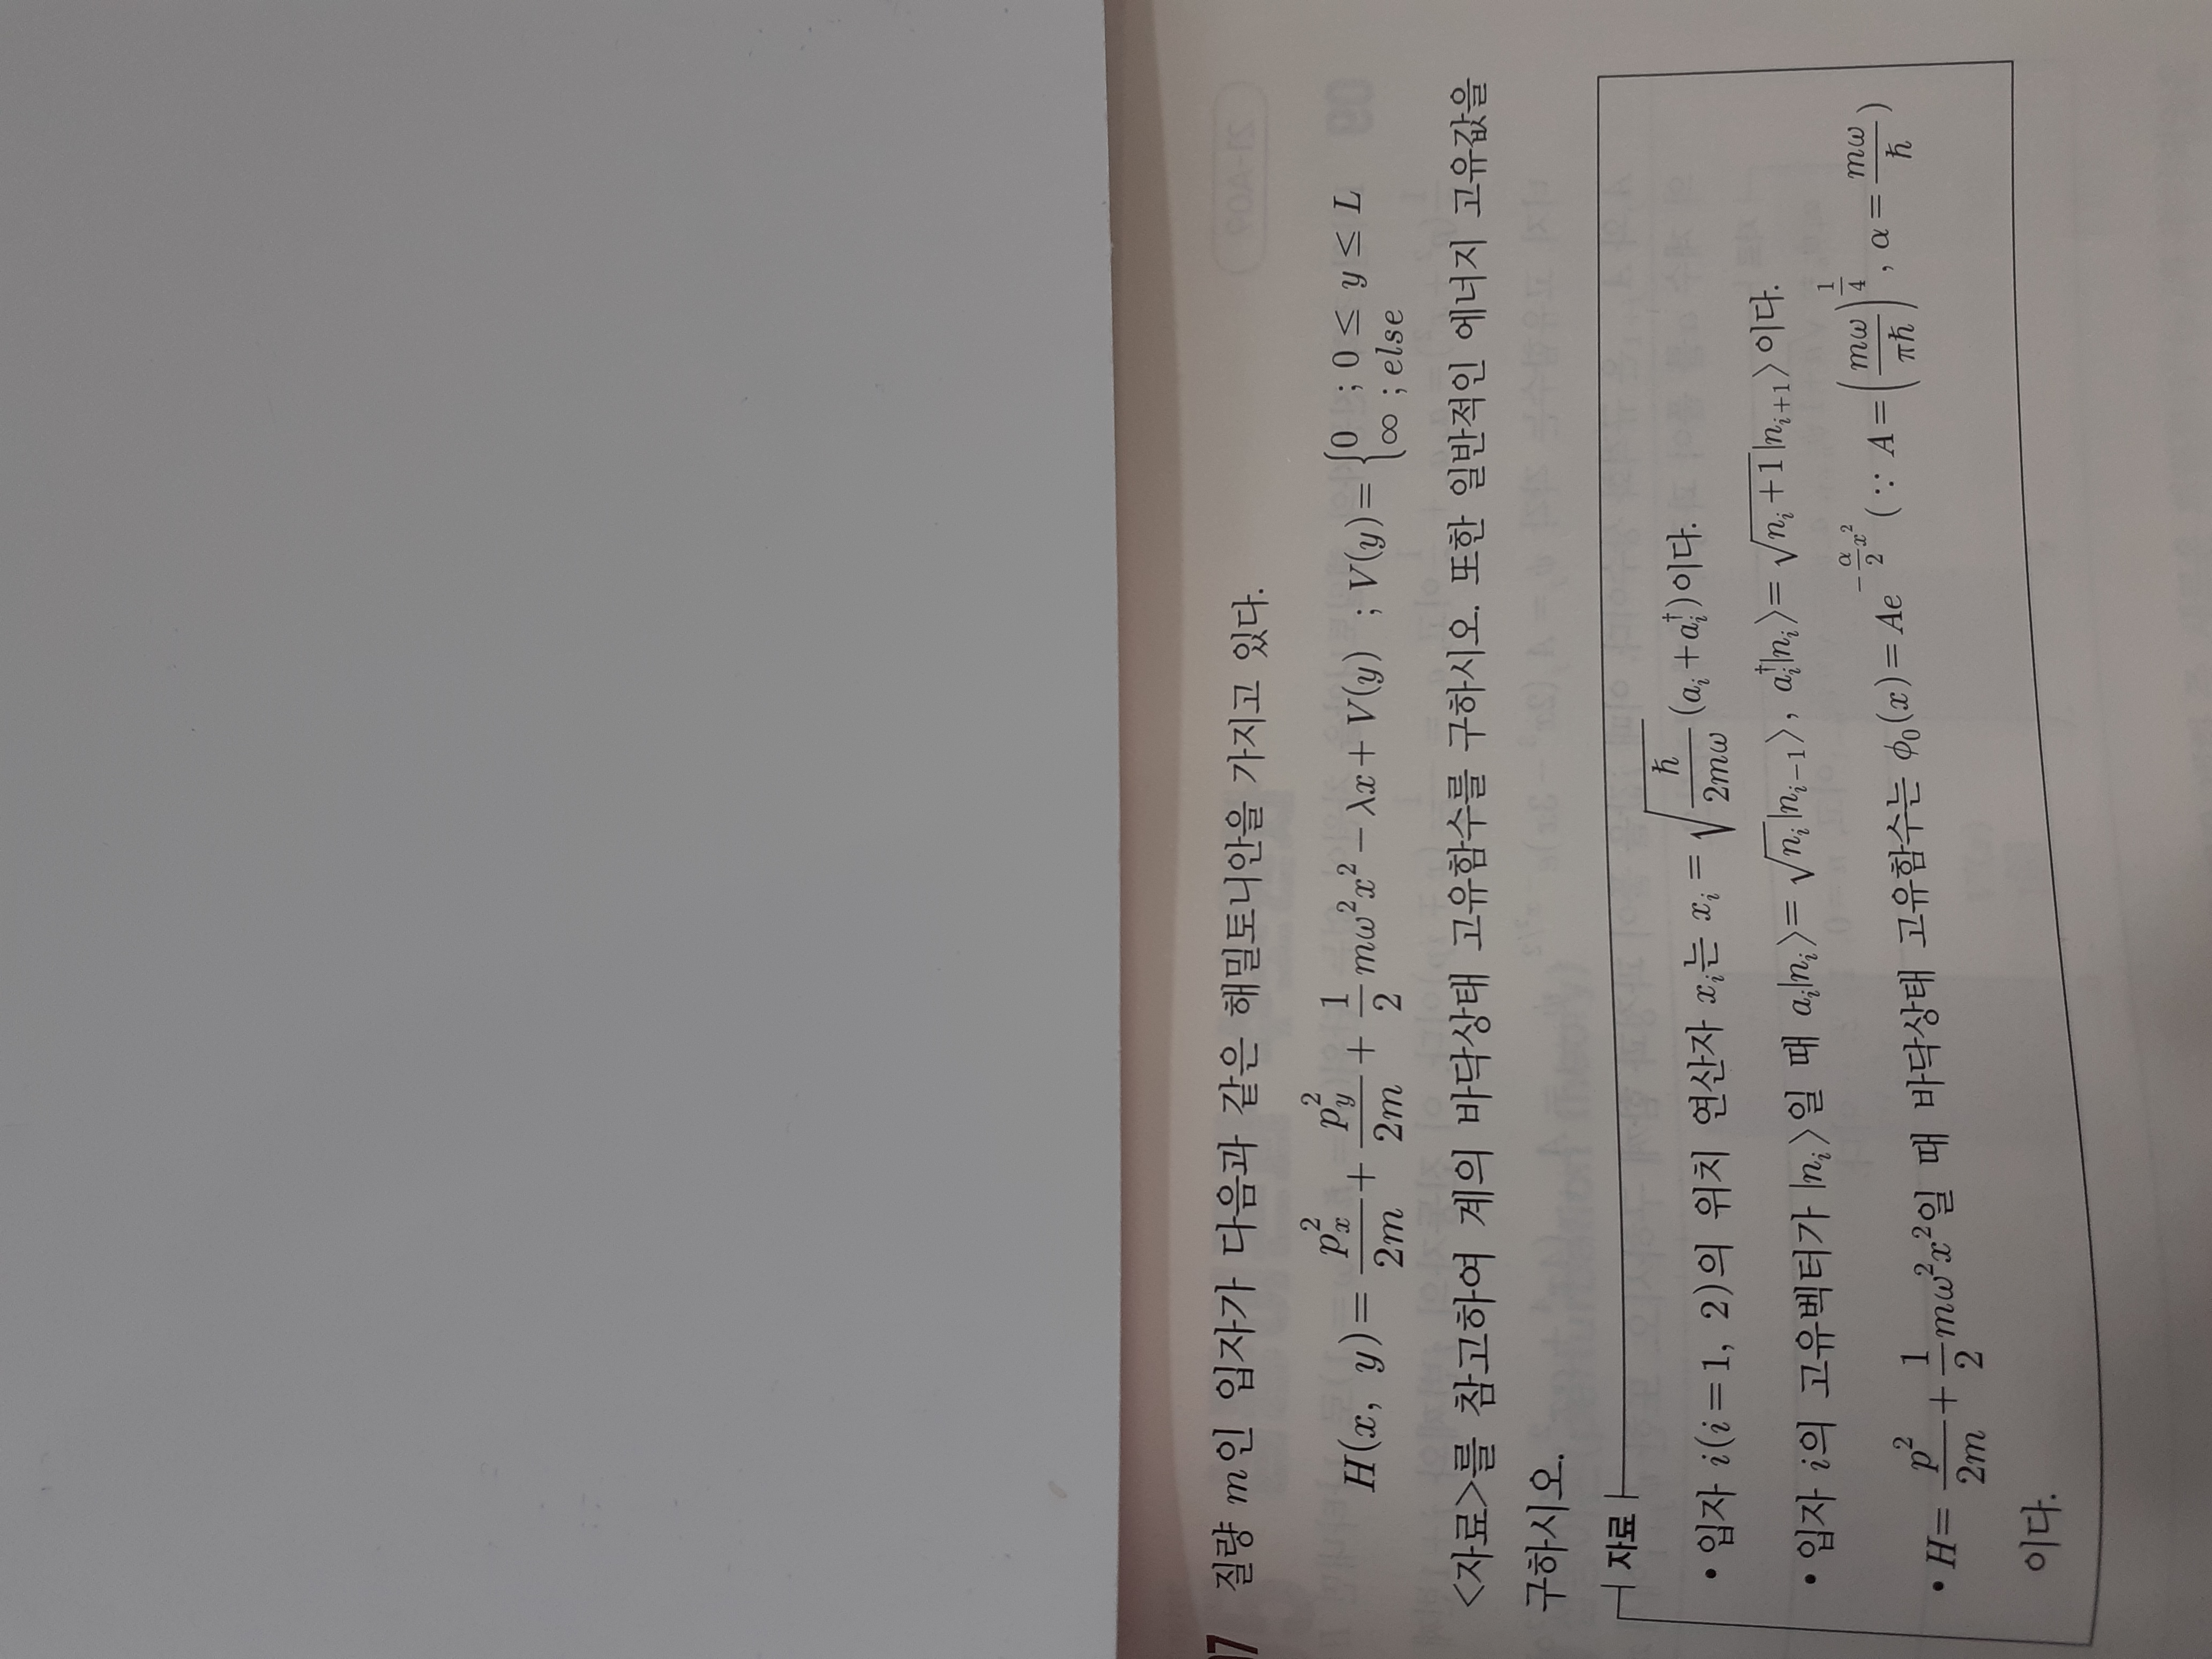 07 질량 m인 입자가 다음과 같은 해밀토니안을 가지고 있다.
H(x, y) = p_x^2/2m + p_y^2/2m + 1/2 mω^2x^2 − λx + V(y) ; V(y) = {0 ; 0 ≤ y ≤ L
∞ ; else
<자료>를 참고하여 계의 바닥상태 고유함수를 구하시오. 또한 일반적인 에너지 고유값을
구하시오.
자료
• 입자 i(i = 1, 2)의 위치 연산자 x_i는 x_i = √(ħ/2mω) (a_i + a_i^†)이다.
• 입자 i의 고유벡터가 |n_i⟩일 때 a_i|n_i⟩ = √n_i |n_{i−1}⟩, a_i^†|n_i⟩ = √(n_i + 1) |n_{i+1}⟩이다.
• H = p^2/2m + 1/2 mω^2x^2일 때 바닥상태 고유함수는 φ_0(x) = Ae^{−α/2 x^2} (∵ A = (mω/πħ)^{1/4}, α = mω/ħ)
이다.